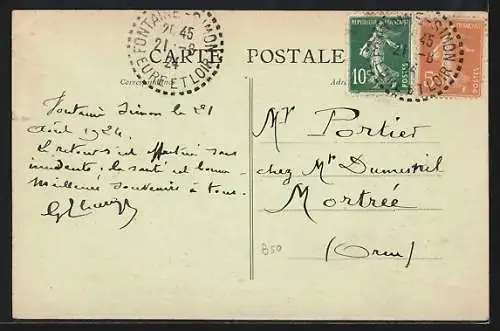 FONTAINE-SIMON
21 45
21-8
24
EURE ET LOIR
CARTE POSTALE
RÉPUBLIQUE FRANÇAISE
10c
POSTES
Correspondance
Fontaine Simon le 21
Août 1924.
Le retour s'est effectué sans
incidents; la santé est bonne.
Meilleurs souvenirs à tous.
Mr Portier
chez Mr Dumesnil
Mortrée
(Orne)
B50